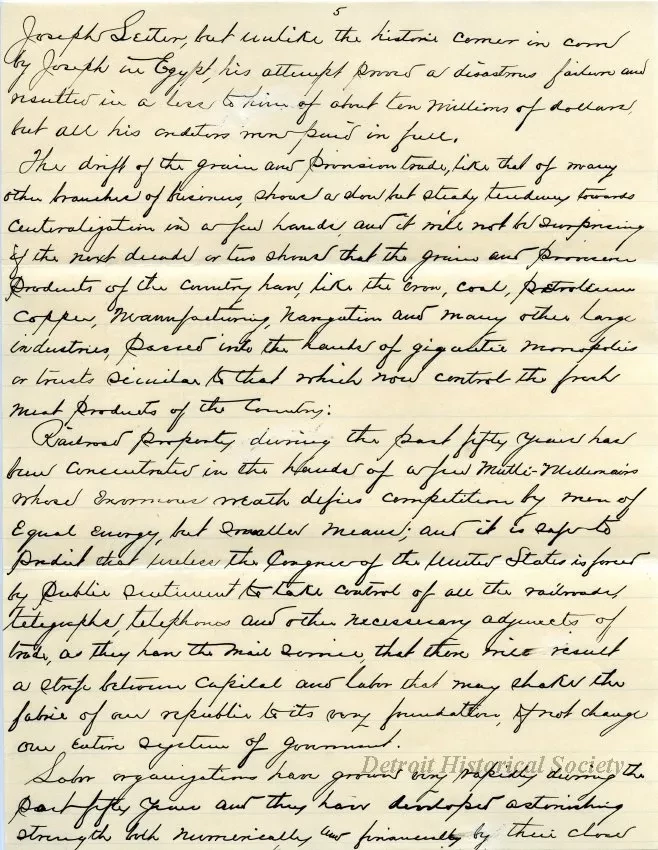 5
Joseph Leiter, but unlike the historic corner in corn
by Joseph in Egypt, his attempt proved a disastrous failure and
resulted in a loss to him of about ten millions of dollars,
but all his creditors were paid in full.
The drift of the grain and provision trade, like that of many
other branches of business, shows a slow but steady tendency towards
centeralization in a few hands, and it will not be surprising
if the next decade or two shows that the grain and provision
products of the country have, like the iron, coal, petroleum
copper, manufacturing, navigation and many other large
industries, passed into the hands of gigantic monopolies
or trusts similar to that which now control the fresh
meat products of the Country.
Railroad property during the past fifty years has
been concentrated in the hands of a few Multi-Millionairs
whose enormous wealth defies competition by men of
equal energy, but smaller means; and it is safe to
predict that unless the Congress of the United States is forced
by public sentiment to take control of all the railroads,
telegraphs, telephones and other necessary adjuncts of
trade, as they have the mail service, that there will result
a strife between capital and labor that may shake the
fabric of our republic to its very foundation, if not change
our entire system of government.
Detroit Historical Society
Labor organizations have grown very rapidly during the
past fifty years and they have developed astonishing
strength both numerically and financially by their closed